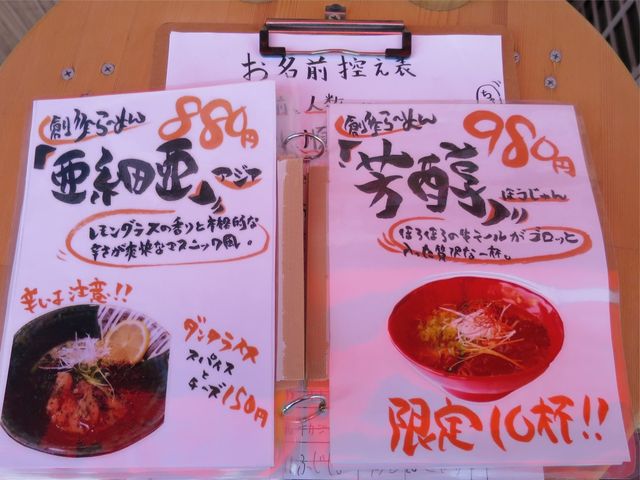 お名前控え表
人数
創作らーめん
880円
「亜細亜」
アジア
レモングラスの香りと本格的な
辛さが爽快なエスニック風。
辛いは注意!!
ダンクライス
スパイス
と
チーズ
150円
創作らーめん
980円
「芳醇」
ほうじゅん
ほろほろの牛テールがゴロッと
入った贅沢な一杯。
限定10杯!!